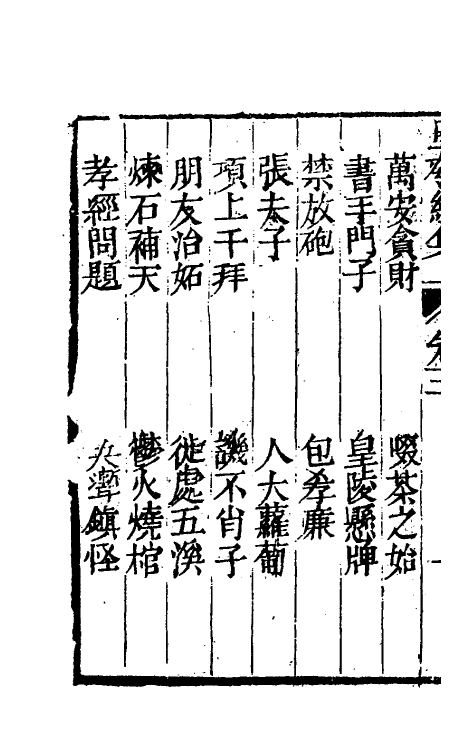 萬安貪財　啜茶之始
書手門子　皇陵懸牌
禁放砲　包孝廉
張夫子　人大蘿蔔
項上干拜　譏不肖子
朋友治妬　徙處五溪
煉石補天　鬱火燒棺
孝經問題　鎮怪